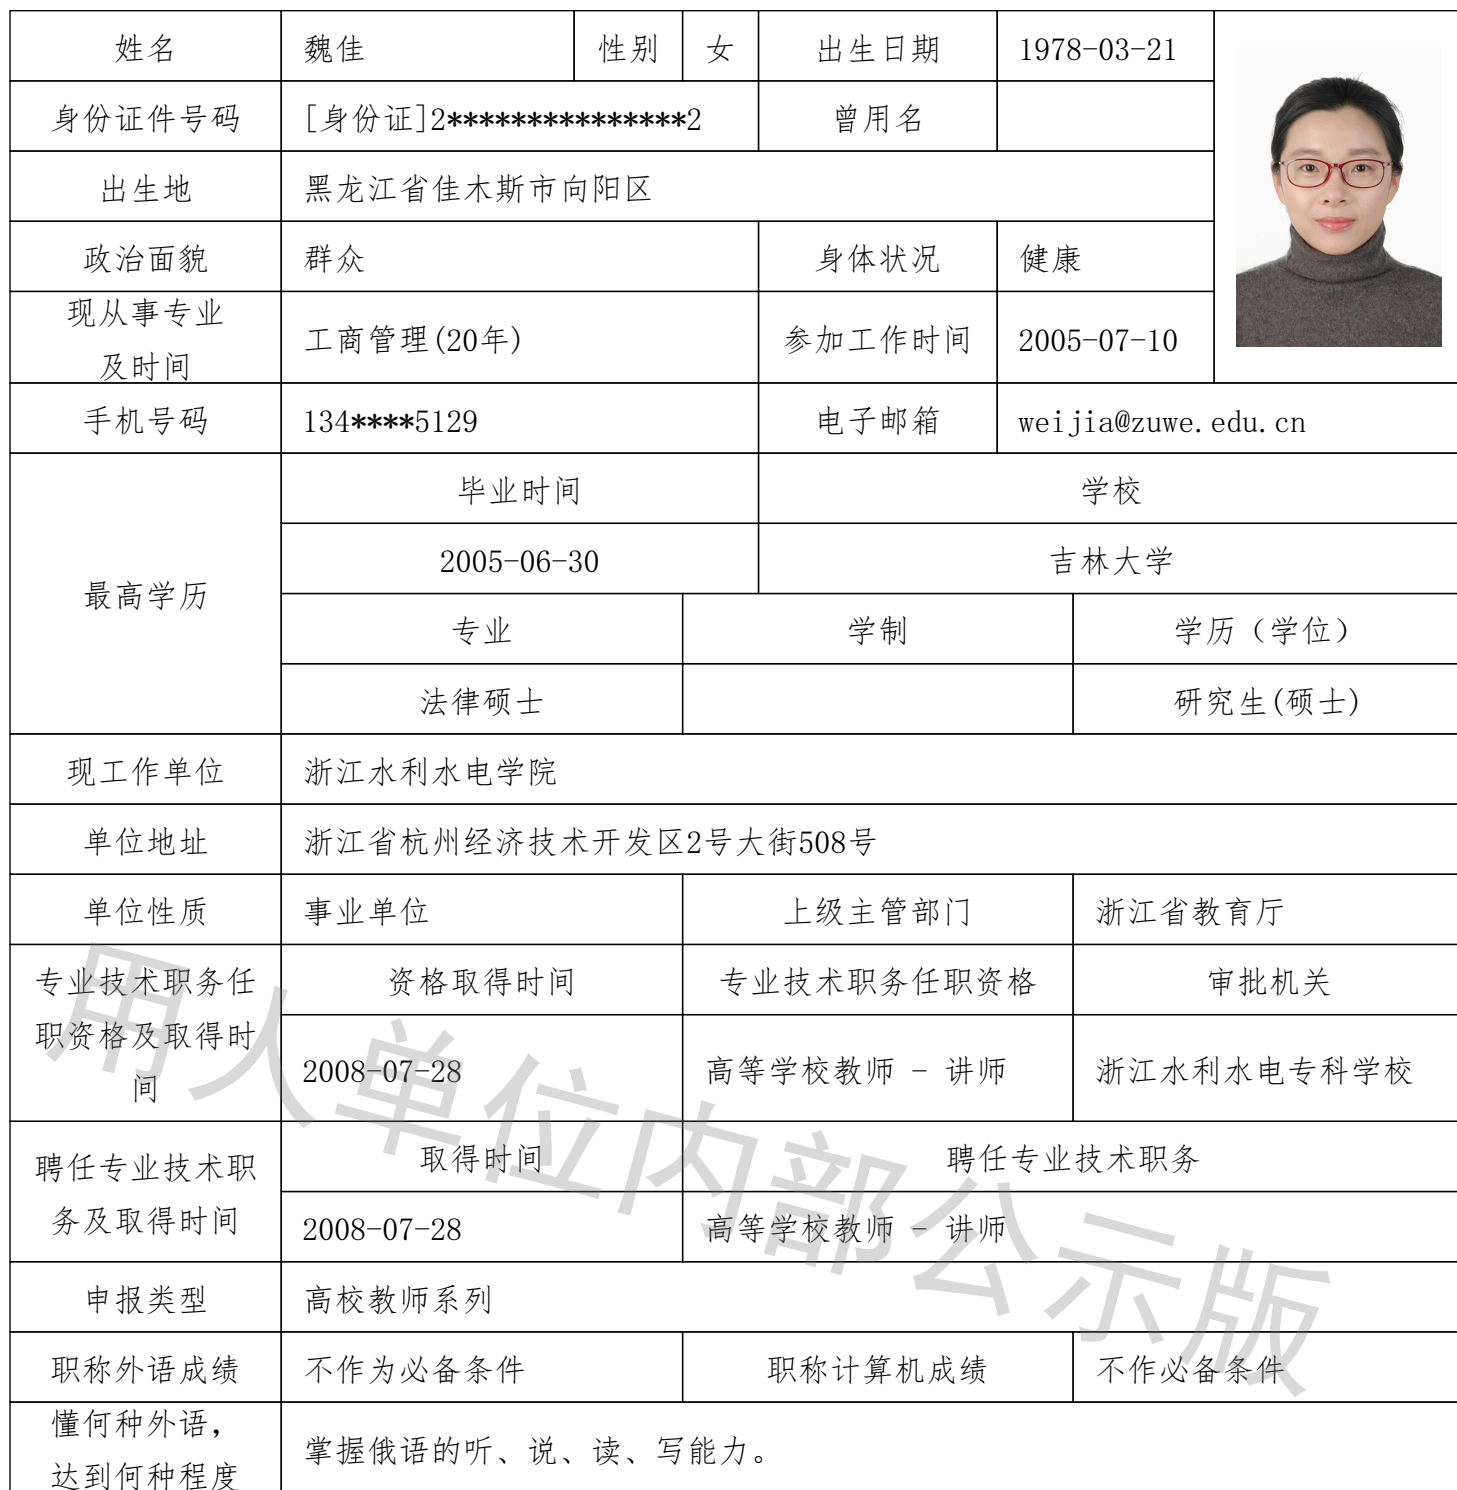 姓名 魏佳 性别 女 出生日期 1978-03-21
身份证件号码 [身份证]2***************2 曾用名
出生地 黑龙江省佳木斯市向阳区
政治面貌 群众 身体状况 健康
现从事专业
及时间
工商管理(20年) 参加工作时间 2005-07-10
手机号码 134****5129 电子邮箱 weijia@zuwe.edu.cn
最高学历
毕业时间 学校
2005-06-30 吉林大学
专业 学制 学历（学位）
法律硕士 研究生(硕士)
现工作单位 浙江水利水电学院
单位地址 浙江省杭州经济技术开发区2号大街508号
单位性质 事业单位 上级主管部门 浙江省教育厅
专业技术职务任
职资格及取得时
间
资格取得时间 专业技术职务任职资格 审批机关
2008-07-28 高等学校教师 - 讲师 浙江水利水电专科学校
聘任专业技术职
务及取得时间
取得时间 聘任专业技术职务
2008-07-28 高等学校教师 - 讲师
申报类型 高校教师系列
职称外语成绩 不作为必备条件 职称计算机成绩 不作必备条件
懂何种外语，
达到何种程度
掌握俄语的听、说、读、写能力。
用人单位内部公示版